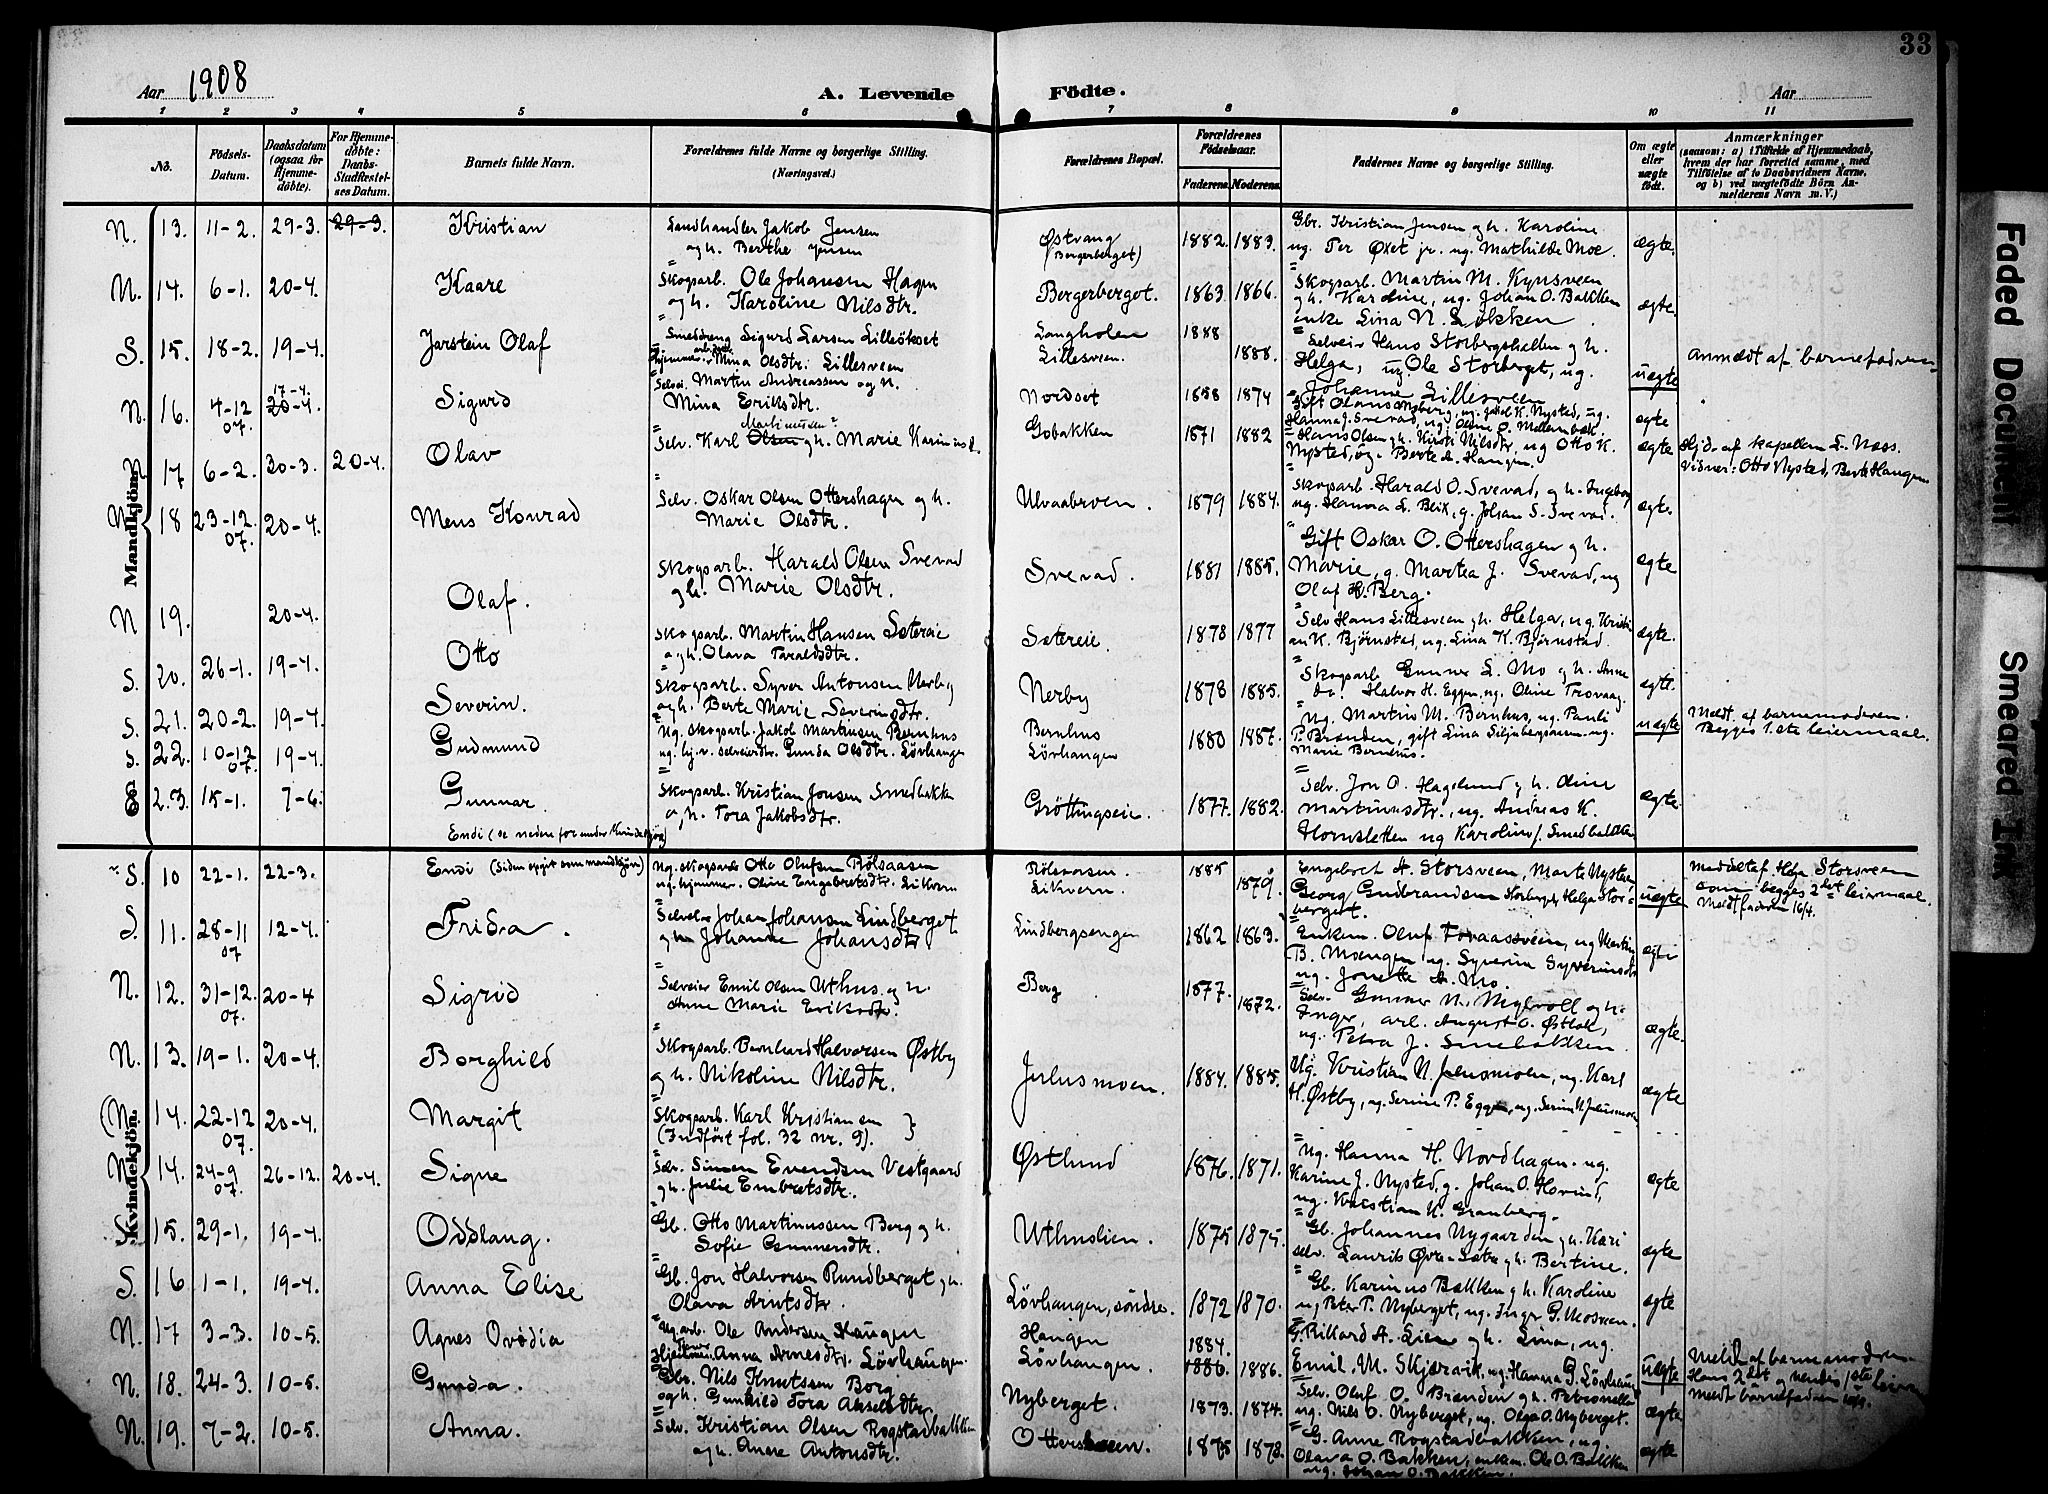 33
Aar 1908
A. Levende Födte.
Aar
1 2 3 4 5 6 7 8 9 10 11
No.
Födsels-Datum.
Daabsdatum (ogsaa for Hjemmedöbte).
For Hjemmedöbte: Daabs-Stadfæstelses Datum.
Barnets fulde Navn.
Forældrenes fulde Navne og borgerlige Stilling. (Næringsvei.)
Forældrenes Bopæl.
Forældrenes Födselsaar.
Faderens. Moderens.
Faddernes Navne og borgerlige Stilling.
Om ægte eller uægte födt.
Anmærkninger
(saasom: a) i Tilfælde af Hjemmedaab, hvem der har forrettet samme, med Tilföielse af to Daabsvidners Navne, og b) ved uægtefödte Börn Anmelderens Navn m. V.)
Mandkjön.
N. 13. 11-2. 29-3. 29-3. Kristian
Landhandler Jakob Jensen
og h. Berthe Jensen
Østvang (Bergerberget) 1882. 1883.
Gbr. Kristian Jensen og h. Karoline
ug. Per Øxet jr. ug. Mathilde Moe. ægte.
N. 14. 6-1. 20-4. Kaare
Skogsarb. Ole Johansen Hagen
og h. Karoline Nilsdtr.
Bergerberget. 1863. 1866.
Skogsarb. Martin M. Kynsveen
og h. Karoline, ug. Johan O. Bakken
enke Lina N. Løkken. ægte.
S. 15. 18-2. 19-4. Jarstein Olaf
Smeddreng Sigurd Larsen Lilleökset
Mina Olsdtr. Lillesveen
Langholen 1888
Lillesveen. 1888.
Selveier Hans Storbergshallen og h.
Helga, ug Ole Storberget, ug.
Johanne Lillesveen uægte
Anmeldt af barnefadren
N. 16. 4-12 07. 17-4. 20-4. Sigurd
Selvei. Martin Andreassen og h.
Mina Eriksdtr.
Nordset 1858 1874
ægte
N. 17 6-2. 30-3. 20-4. Olav
Selv. Karl Olsen Martinussen og h. Marie Karinusd.
Gobakken 1871 1882
Hans Olsen g h. Kirsti Nilsdtr, ug Otto K.
Nysted, ug. Berte A. Haugen. ægte
Hjd. af kapellan L. Næss.
Vidner: Otto Nysted, Berte Haugen
N. 18 23-12. 07. 20-4. Mens Konrad
Selv. Oskar Olsen Ottershagen g h.
Marie Olsdtr.
Ulvaabroen. 1879 1884.
Skogsarb. Harald O. Svevad, og h. Ingeborg
ug. Hanna L. Blix, g. Johan S. Svevad. ægte
N 19. 20-4. Olaf.
Skogsarb. Harald Olsen Svevad
g h. Marie Olsdtr.
Svevad. 1881 1885.
Gift Oskar O. Ottershagen g h.
Marie, g. Martea J. Svevad, ug
Olaf H. Berg. ægte
S. 20. 26-1. 19-4. Otto
Skogsarb. Martin Hansen Sætereie
og h. Olava Taraldsdtr.
Sætereie 1878 1877
Selv Hans Lillesveen g h. Helga, ug. Kristi
an K. Björnstad, ug. Lina K. Björnstad. ægte.
S. 21. 20-2. 19-4. Severin.
Skogsarb. Syver Antonsen Nerby
og h. Berte Marie Severinsdtr.
Nerby 1878 1885.
Skogsarb Gunner L. Mo og h. Anne
Halvor H. Eggen, ug. Oline Trovaag ægte.
S. 22. 10-12 07. 19-4. Gudmund
Ug. skogsarb. Jakob Martinsen Bernhus
ug. hj.v. selveierdtr. Gunda Olsdtr. Lövhaugen
Bernhus
Lövhaugen 1880 1887.
Ug. Martin M. Bernhus, ug. Pauli
P. Brænden, gift Lina
Marie Bernhus. uægte
Meldt. af barnemoderen.
Begges 1.ste leiermaal.
S. 23. 15-1. 7-6. Gunnar.
Skogsarb. Kristian Jonsen Smedbakke
og h. Tora Jakobsdtr.
Gröttingseie. 1877. 1882.
Selv. Jon O. Hagelund g h. Oline
Martinusdtr., ug. Andreas K.
Hornsletten ug Karoline J. Smedbakken ægte
Endi (se neden for under Kvindekjøn)
Kvindekjön.
S. 10 22-1. 22-3. Endi (Siden opgit som mandkjön)
Ug. skogsarb Otto Olufsen Rölsaasen
ug. hjemmev. Oline Engebretsdtr. Likvern
Rölsaasen. 1885
Likvern. 1879.
Engebret A. Storsveen, Marte Nysteen,
Georg Gudbrandsen Storberget, Helga Stor-
berget. uægte
Meddelt af Helga Storsveen
som begges 2det leiermaal.
Meldt faderen 16/4.
S. 11. 28-11 07 12-4. Frida.
Selveier Johan Johansen Lindberget
og h Johanne Johansdtr
Lindbergsengen 1862 1863.
Enkem. Oluf Foraassveen, ug Martin
B. Moengen ug. Syverin Syverinsdtr
ug. Jonette A. Mo. ægte
N. 12. 31-12. 07. 20-4 Sigrid
Selveier Emil Olsen Uthus, og h.
Anne Marie Eriksdtr.
Berg 1877. 1872.
Selv. Gunner N. Myrvoll og h.
Inger, arb. August O. Østbak,
ug. Petra J. Smedbakken. ægte.
N. 13. 19-1. 20-4. Borghild
Skogsarb. Bernhard Halvorsen Østby
og h. Nikoline Nilsdtr.
Julusmoen. 1884. 1885.
Ug. Kristian N. Julusmoen, ug. Karl
H. Østby, ug. Serine P. Eggen, ug. Serine N. Julusmoen ægte
(N. 14. 22-12 07. 20-4. Margit
Skogsarb. Karl Kristiansen
(Indfört fol. 32 nr. 9).
N. 14. 24-9 07. 26-12. 20-4. Signe
Selv. Simen Evendsen Vestgaard
og h. Julie Embretsdtr.
Østlund 1876. 1871.
Ug. Hanna H. Nordhagen. ug.
Karine J. Nysted, g. Johan O. Hovind,
ug. Kristian K. Granberg. ægte
S. 15. 29-1. 19-4. Oddlaug.
Gb. Otto Martinussen Berg og h.
Sofie Gunnersdtr.
Uthuslien. 1875 1875.
Gb. Johannes Nygaarden g h. Kari
selv. Laurits Øvre-Sætre g h. Bertine. ægte
S. 16 1-1. 19-4. Anna Elise
Gb. Jon Halvorsen Rundberget g h.
Olava Arntsdtr.
Lövhaugen, söndre. 1872 1870.
Gb. Karinus Bakken g h. Karoline
ug Peter P. Nyberget, ug. Inger G. Mosveen. ægte
N. 17 3-3. 10-5. Agnes Ovidia
Ug arb. Ole Andersen Haugen
Anna Arnesdtr. Lövhaugen.
Haugen 1884.
Lövhaugen. 1886. 1886.
G. Rikard A. Lien g h. Lina, ug.
Emil M. Skjærvik, ug. Hanna G. Lövhaug uægte
Meldt af barnemodren.
Hans 2det og hendes 1ste leierm
Meldt barnefadren
N. 18. 24-3. 10-5. Gunda.
Gbr. Nils Knutssen Borg
og h. Gunhild Tora Akselsdtr.
Nyberget. 1873. 1874.
Selv. Oluf O. Brænden og h. Petronella
ug. Nils O. Nyberget, ug. Olga O. Nyberget. ægte
N. 19. 7-2. 10-5. Anna.
Selv. Kristian Olsen Rogstadbakken
og h. Anne Antonsdtr.
Ottersveen. 1875 1878.
G. Anne Rogstadbakken, ug.
Olava O. Bakken, enkem. Ole O. Bakken
ug. Johan O. Bakken. ægte
Faded Document
Smeared Ink